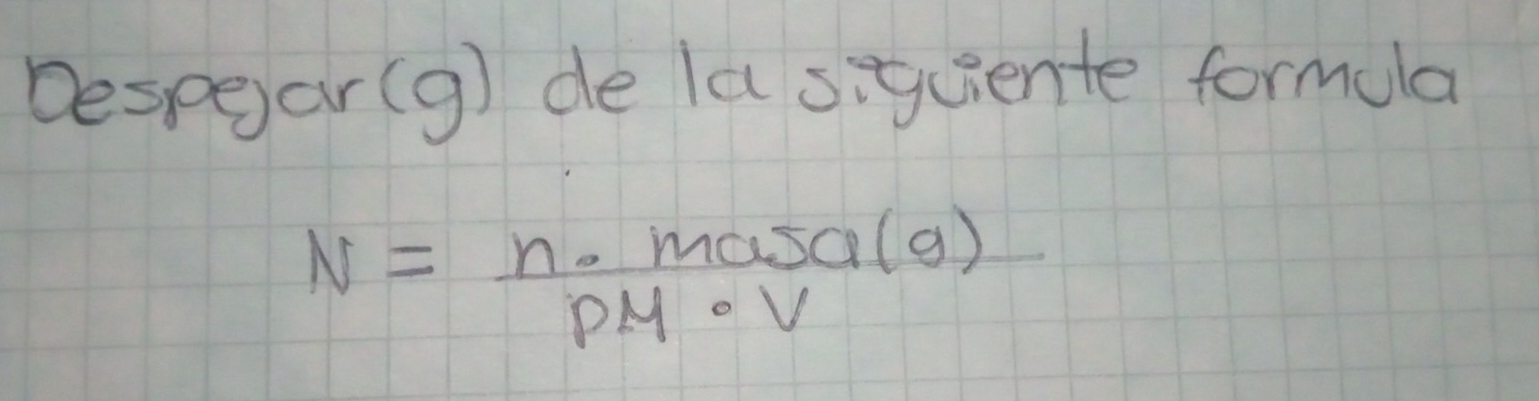 Despejar (g) de la siguiente formula
N = n. masa (g)
PM . V